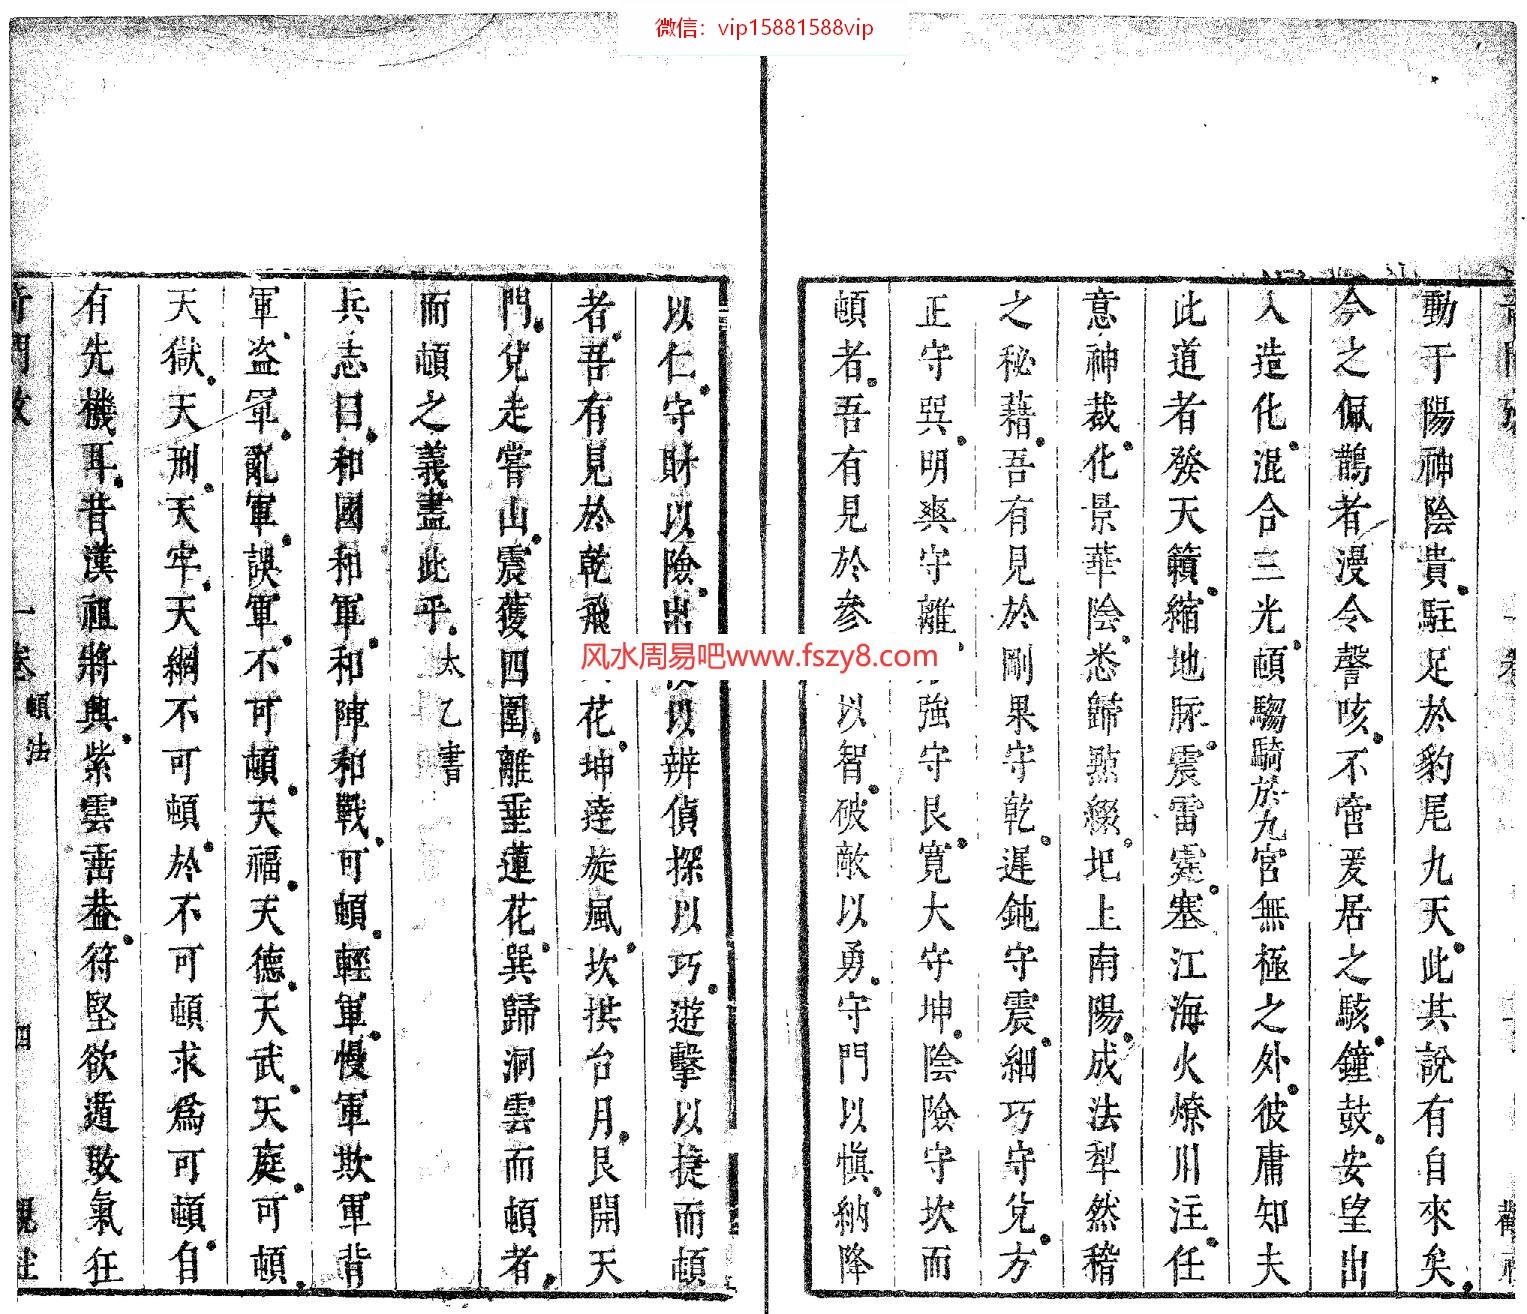 微信：vip15881588vip
動于陽神陰貴駐足於豹尾九天此其說有自來矣
今之佩鵲者漫令謦咳不啻爰居之駭鐘鼓安望出
入造化混合三光頓騶騎於九宮無極之外彼庸知夫
此道者發天籟縮地脈震雷霆塞江海火燎川注任
意神裁化景華陰悉歸點綴圯上南陽成法犁然稽
之秘藉吾有見於剛果守乾遲鈍守震細巧守兌方
正守巽明爽守離強守艮寬大守坤陰險守坎而
頓者吾有見於參以智破敵以勇守門以慎納降
以仁守財以險出以辨偵探以巧遊擊以捷而頓
者吾有見於乾飛花坤逵旋風坎拱台月艮開天
門兌走嘗山震獲四圍離垂蓮花巽歸洞雲而頓者
而頓之義盡此乎太乙書
兵志曰和國和軍和陣和戰可頓輕軍慢軍欺軍背
軍盗軍亂軍誤軍不可頓天福天德天武天庭可頓
天獄天刑天牢天網不可頓於不可頓求為可頓自
有先機耳昔漢祖將興紫雲垂蓋符堅欲遁敗氣狂
頓法
四
风水周易吧www.fszy8.com